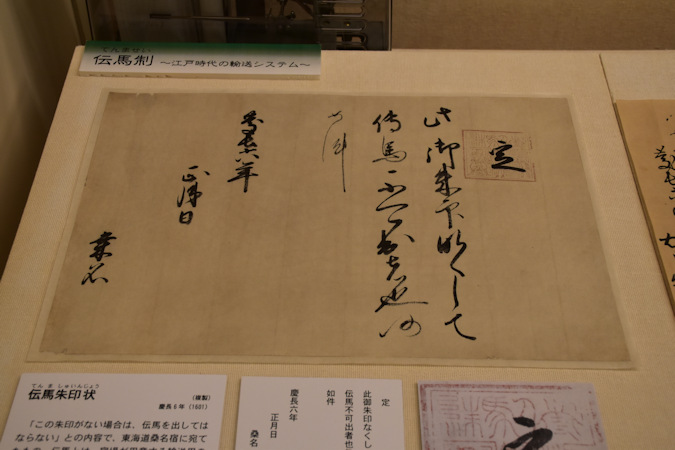 てんませい
伝馬制 ～江戸時代の輸送システム～
定
此御朱印なくして
伝馬不可出者也仍
如件
慶長六年
正月日
桑名
てんま しゅいんじょう
伝馬朱印状
(複製)
慶長6年(1601)
「この朱印がない場合は、伝馬を出しては
ならない」との内容で、東海道桑名宿に宛て
定
此御朱印なくし
伝馬不可出者也
如件
慶長六年
正月日
桑名